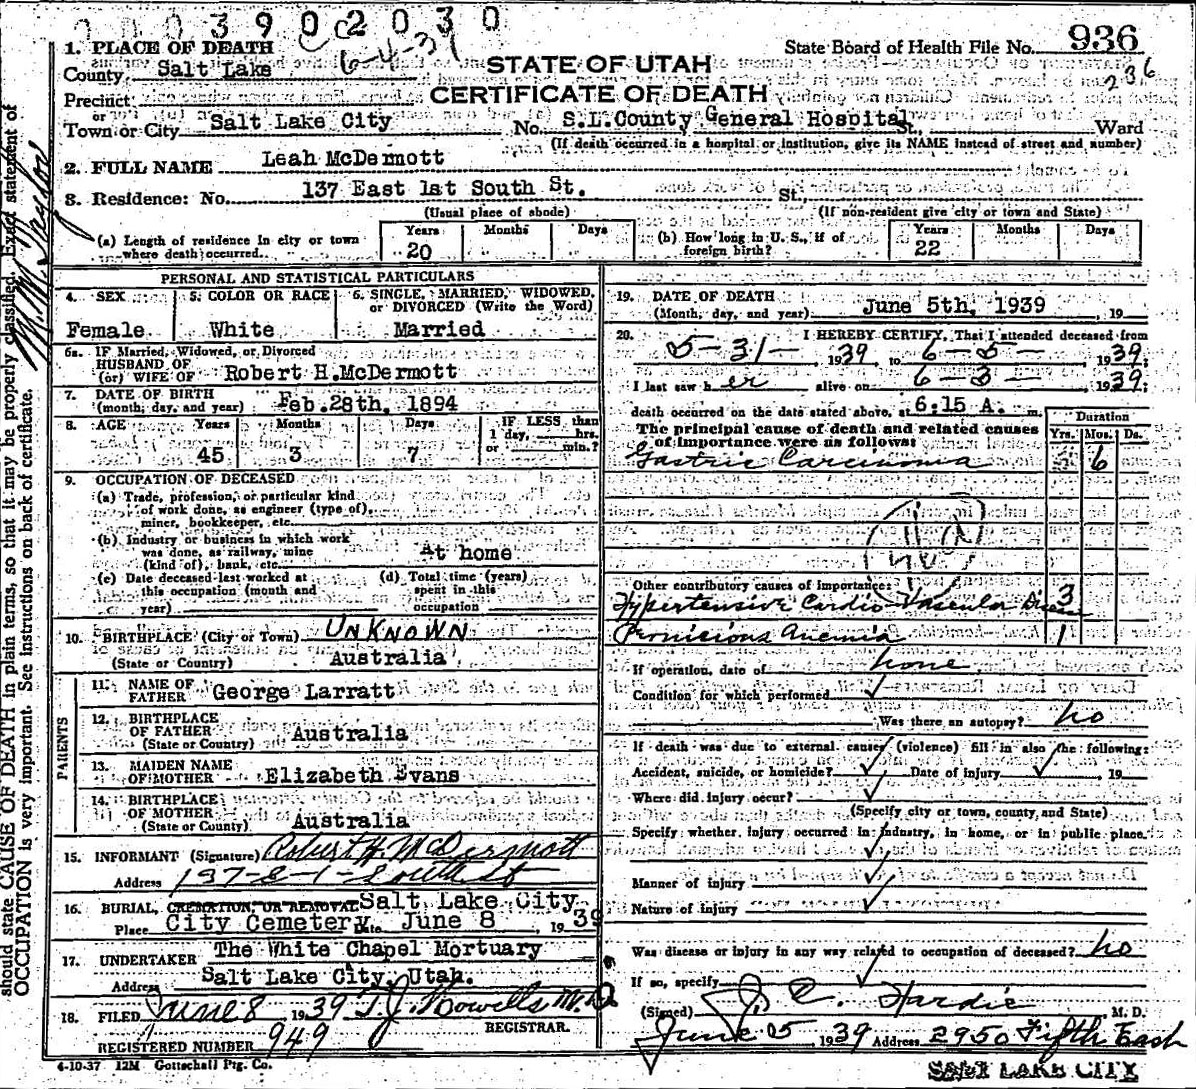 0390 2030
6-4-39
1. PLACE OF DEATH
County Salt Lake
State Board of Health File No. 936
236
STATE OF UTAH
CERTIFICATE OF DEATH
Precinct
or
Town or City Salt Lake City No. S.L.County General Hospital St., Ward
(If death occurred in a hospital or institution, give its NAME instead of street and number)
2. FULL NAME Leah McDermott
3. Residence: No. 137 East 1st South St. St.,
(Usual place of abode) (If non-resident give city or town and State)
(a) Length of residence in city or town where death occurred. Years 20 Months Days
(b) How long in U. S., if of foreign birth? Years 22 Months Days
PERSONAL AND STATISTICAL PARTICULARS
4. SEX Female
5. COLOR OR RACE White
6. SINGLE, MARRIED, WIDOWED, or DIVORCED (Write the Word) Married
6a. IF Married, Widowed, or Divorced
HUSBAND OF
(or) WIFE OF Robert H.McDermott
7. DATE OF BIRTH
(month, day, and year) Feb.28th, 1894
8. AGE Years 45 Months 3 Days 7 IF LESS than 1 day, hrs. or min.?
9. OCCUPATION OF DECEASED
(a) Trade, profession, or particular kind
of work done, as engineer (type of),
miner, bookkeeper, etc.
(b) Industry or business in which work
was done, as railway, mine
(kind of), bank, etc. At home
(c) Date deceased last worked at
this occupation (month and
year)
(d) Total time (years)
spent in this
occupation
10. BIRTHPLACE (City or Town) UNKNOWN
(State or Country) Australia
PARENTS
11. NAME OF
FATHER George Larratt
12. BIRTHPLACE
OF FATHER
(State or Country) Australia
13. MAIDEN NAME
OF MOTHER Elizabeth Evans
14. BIRTHPLACE
OF MOTHER
(State or Country) Australia
15. INFORMANT (Signature) Robert H. McDermott
Address 137-E-1-South St
16. BURIAL, CREMATION, OR REMOVAL Salt Lake City
Place City Cemetery Date June 8, 1939
17. UNDERTAKER The White Chapel Mortuary
Address Salt Lake City, Utah.
18. FILED June 8 1939 T.J. Howells M.D.
REGISTRAR.
REGISTERED NUMBER 949
4-10-37 12M Gottschall Ptg. Co.
19. DATE OF DEATH
(Month, day, and year) June 5th, 1939, 19
20. I HEREBY CERTIFY, That I attended deceased from
5-31- 1939 to 6-5- 1939
I last saw her alive on 6-3- 1939;
death occurred on the date stated above, at 6:15 A. m.
The principal cause of death and related causes
of importance were as follows:
Duration
Yrs. Mos. Ds.
Gastric Carcinoma 6
Other contributory causes of importance:
Hypertensive Cardio-Vascular Disease 3
Pernicious Anemia 1
If operation, date of none
Condition for which performed
Was there an autopsy? no
If death was due to external causes (violence) fill in also the following:
Accident, suicide, or homicide? Date of injury, 19
Where did injury occur?
(Specify city or town, county, and State)
Specify whether injury occurred in industry, in home, or in public place.
Manner of injury
Nature of injury
Was disease or injury in any way related to occupation of deceased? no
If so, specify
(Signed) J. C. Hardie M. D.
June 5, 1939 Address 2950 Fifth East
SALT LAKE CITY
should state CAUSE OF DEATH in plain terms, so that it may be properly classified. Exact statement of
OCCUPATION is very important. See instructions on back of certificate.